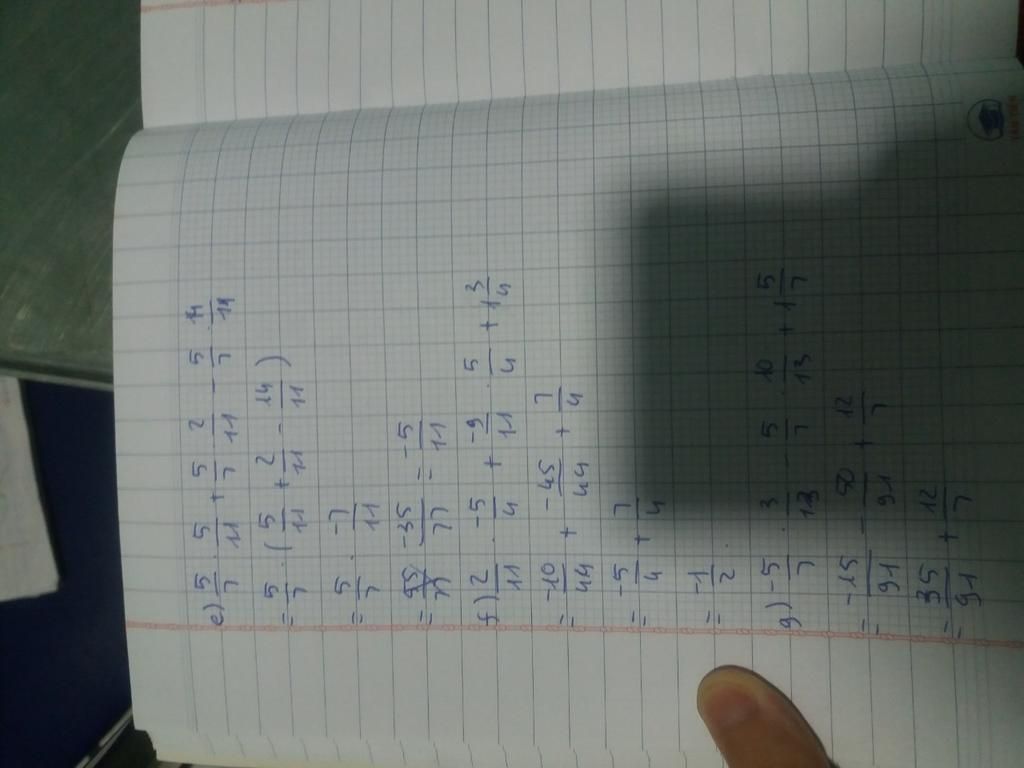 e) 5/7 . 5/11 + 5/7 . 2/11 - 5/7 . 14/11
= 5/7 . (5/11 + 2/11 - 14/11)
= 5/7 . -7/11
= -35/77 = -5/11
f) 2/11 . -5/4 + -9/11 . 5/4 + 1 3/4
= -10/44 + -45/44 + 7/4
= -5/4 + 7/4
= -1/2
g) -5/7 . 3/13 - 5/7 . 10/13 + 1 5/7
= -15/91 - 50/91 + 12/7
= 35/91 + 12/7